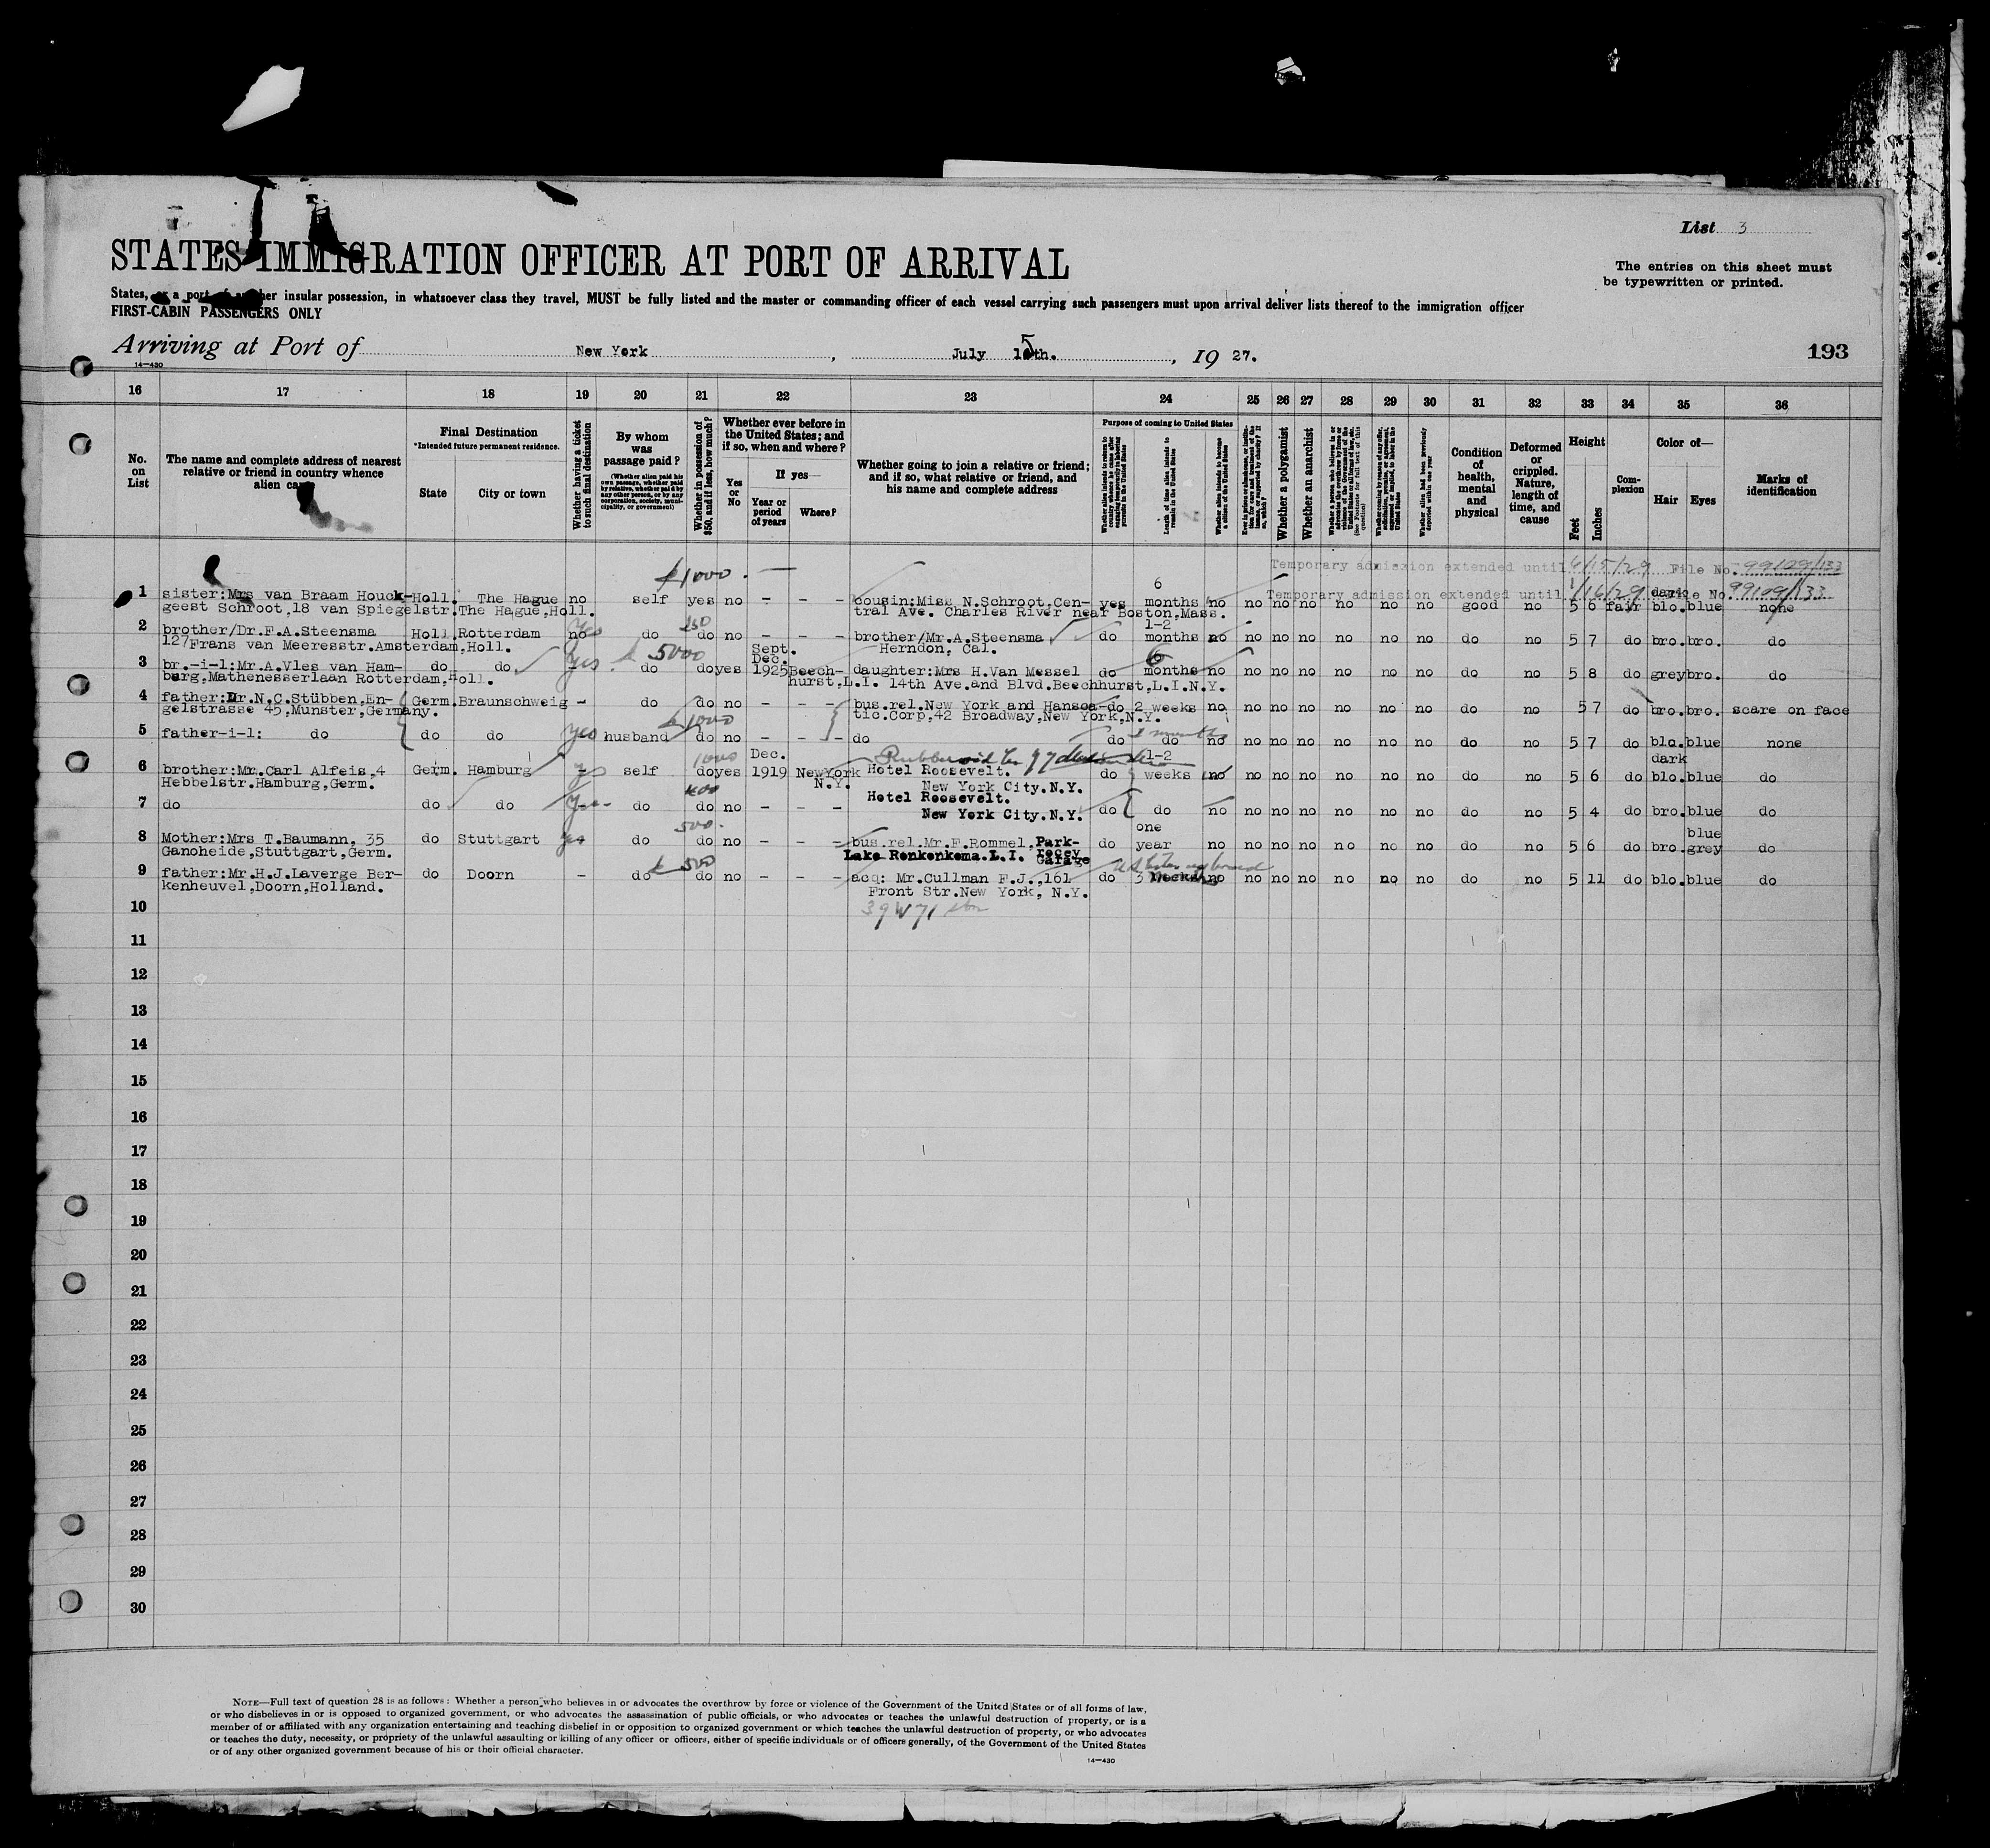 List 3
STATES IMMIGRATION OFFICER AT PORT OF ARRIVAL
The entries on this sheet must
be typewritten or printed.
States, or a port of another insular possession, in whatsoever class they travel, MUST be fully listed and the master or commanding officer of each vessel carrying such passengers must upon arrival deliver lists thereof to the immigration officer
FIRST-CABIN PASSENGERS ONLY
Arriving at Port of New York, July 15th., 19 27.
193
14—430
16 17 18 19 20 21 22 23 24 25 26 27 28 29 30 31 32 33 34 35 36
No. on List
The name and complete address of nearest relative or friend in country whence alien came
Final Destination
*Intended future permanent residence.
State
City or town
Whether having a ticket to such final destination
By whom was passage paid?
(Whether alien paid his own passage, whether paid by relative, whether paid by any other person, or by any corporation, society, municipality, or government)
Whether in possession of $50, and if less, how much?
Whether ever before in the United States; and if so, when and where?
Yes or No
If yes—
Year or period of years
Where?
Whether going to join a relative or friend; and if so, what relative or friend, and his name and complete address
Purpose of coming to United States
Whether alien intends to return to country whence he came after engaging temporarily in laboring pursuits in the United States
Length of time alien intends to remain in the United States
Whether alien intends to become a citizen of the United States
Ever in prison or almshouse, or institution for care and treatment of the insane, or supported by charity? If so, which?
Whether a polygamist
Whether an anarchist
Whether alien had been previously deported within one year
Condition of health, mental and physical
Deformed or crippled. Nature, length of time, and cause
Height
Feet
Inches
Complexion
Color of—
Hair
Eyes
Marks of identification
$1000. —
Temporary admission extended until 6/15/29 File No. 99109/133
Temporary admission extended until 1/16/29 File No. 99109/133
1 sister:Mrs van Braam Houck- Holl. The Hague no self yes no – – – cousin:Miss N.Schroot,Cen- yes 6 months no no no no no no no good no 5 6 fair dark blo. blue none
geest Schroot,18 van Spiegelstr.The Hague,Holl. tral Ave. Charles River near Boston,Mass.
2 brother/Dr.F.A.Steensma Holl. Rotterdam no yes do 150 do no – – – brother/Mr.A.Steensma do 1-2 months no no no no no no no do no 5 7 do bro. bro. do
127Frans van Meeresstr.Amsterdam,Holl. Herndon, Cal.
3 br.-i-l:Mr.A.Vles van Ham- do do yes do 5000 do yes Sept. Dec. 1925 Beech- daughter:Mrs H.Van Messel do 6 months no no no no no no no do no 5 8 do grey bro. do
burg,Mathenesserlaan Rotterdam,Holl. hurst,L.I. 14th Ave.and Blvd.Beechhurst,L.I.N.Y.
4 father:Dr.N.C.Stübben,En- Germ. Braunschweig – do do no – – – bus.rel.New York and Hansea- do 2 weeks no no no no no no no do no 5 7 do bro. bro. scare on face
gelstrasse 45,Munster,Germany. tic.Corp,42 Broadway,New York,N.Y.
5 father-i-l: do do do yes husband $1000 do no – – – do do do no no no no no no no do no 5 7 do blo. blue none
6 brother:Mr.Carl Alfeis,4 Germ. Hamburg yes self 1000 do yes Dec. 1919 NewYork N.Y. Hotel Roosevelt. do 1-2 weeks no no no no no no no do no 5 6 do dark blo. blue do
Hebbelstr.Hamburg,Germ. New York City.N.Y.
7 do do do yes do 400 do no – – – Hotel Roosevelt. do do no no no no no no no do no 5 4 do bro. blue do
New York City.N.Y.
8 Mother:Mrs T.Baumann, 35 do Stuttgart yes do 500. do no – – – bus.rel.Mr.F.Rommel, Park- do one year no no no no no no no do no 5 6 do bro. blue grey do
Ganoheide,Stuttgart,Germ. Lake Ronkonkoma.L.I. Garage
9 father:Mr.H.J.Laverge Ber- do Doorn – do $ 500 do no – – – acq: Mr.Cullman F.J.,161 do 3 no no no no no no no do no 5 11 do blo. blue do
kenheuvel,Doorn,Holland. Front Str.New York, N.Y.
39 W 71
10
11
12
13
14
15
16
17
18
19
20
21
22
23
24
25
26
27
28
29
30
NOTE—Full text of question 28 is as follows: Whether a person who believes in or advocates the overthrow by force or violence of the Government of the United States or of all forms of law,
or who disbelieves in or is opposed to organized government, or who advocates the assassination of public officials, or who advocates or teaches the unlawful destruction of property, or is a
member of or affiliated with any organization entertaining and teaching disbelief in or opposition to organized government or which teaches the unlawful destruction of property, or who advocates
or teaches the duty, necessity, or propriety of the unlawful assaulting or killing of any officer or officers, either of specific individuals or of officers generally, of the Government of the United States
or of any other organized government because of his or their official character.
14—430